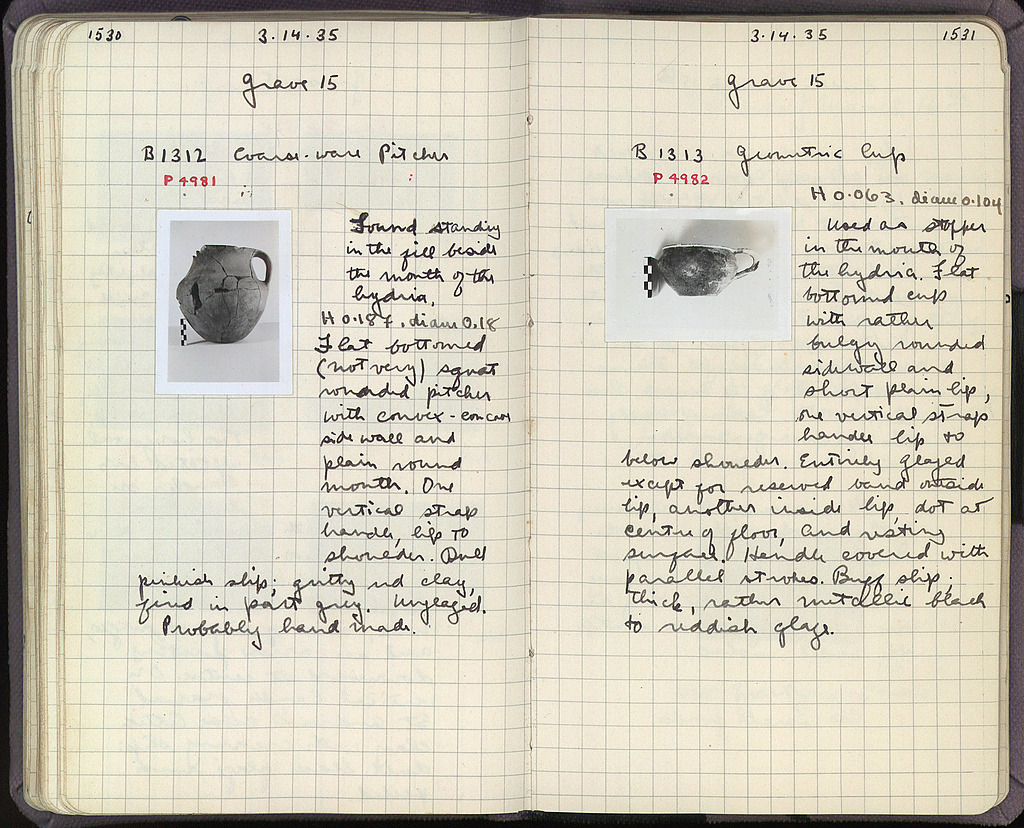 1530
3.14.35
Grave 15
B 1312 Coarse-ware Pitcher
P 4981
Found standing
in the fill beside
the mouth of the
hydria.
H 0.187, diam 0.18
Flat bottomed
(not very) squat
rounded pitcher
with convex-concave
side wall and
plain round
mouth. One
vertical strap
handle, lip to
shoulder. Dull
pinkish slip; gritty red clay,
fired in part grey. Unglazed.
Probably hand made.
3.14.35
1531
Grave 15
B 1313 Geometric Cup
P 4982
H 0.063, diam 0.104
Used as stopper
in the mouth of
the hydria. Flat
bottomed cup
with rather
bulgy rounded
sidewall and
short plain lip;
one vertical strap
handle lip to
below shoulder. Entirely glazed
except for reserved band outside
lip, another inside lip, dot at
centre of floor, and resting
surface. Handle covered with
parallel strokes. Buff slip;
thick, rather metallic black
to reddish glaze.